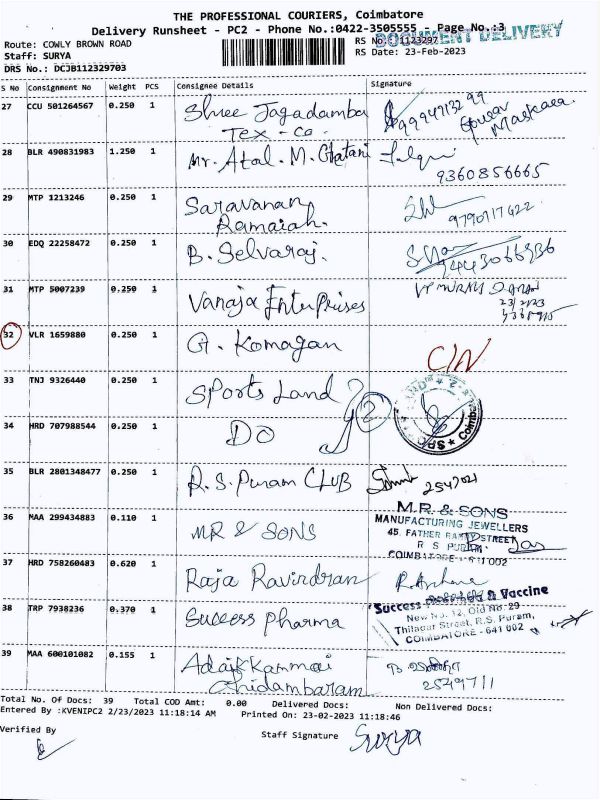 THE PROFESSIONAL COURIERS, Coimbatore
Delivery Runsheet - PC2 - Phone No.:0422-3505555 - Page No.:3
DOCUMENT DELIVERY
Route: COWLY BROWN ROAD
RS No.:
Staff: SURYA
RS Date: 23-Feb-2023
DRS No.: DCJB112329703
S No Consignment No Weight PCS Consignee Details Signature
27 CCU 501264567 0.250 1 Shree Jagadamba
Tex - Co.
28 BLR 490831983 1.250 1 Mr. Atal. M. Gtatani
9360856665
29 MTP 1213246 0.250 1 Saravanan
Ramaiah.
30 EDQ 22258472 0.250 1 B. Selvaraj.
31 MTP 5007239 0.250 1 Vanaja Enterprises
32 VLR 1659880 0.250 1 G. Komagan
C/N
33 TNJ 9326440 0.250 1 Sports Land
2
34 HRD 707988544 0.250 1 DO
35 BLR 2801348477 0.250 1 R.S. Puram CLUB
36 MAA 299434883 0.110 1 MR & SONS
M.R. & SONS
MANUFACTURING JEWELLERS
45, FATHER STREET
R S PURAM,
COIMBATORE - 002
37 HRD 758260483 0.620 1 Raja Ravindran
38 TRP 7938236 0.370 1 Success pharma
Success & Vaccine
New No. 12, Old No. 29
Thilagar Street, R.S. Puram,
COIMBATORE - 641 002
39 MAA 600101082 0.155 1 Adaikkammai
Chidambaram
2549711
Total No. Of Docs: 39 Total COD Amt: 0.00 Delivered Docs: Non Delivered Docs:
Entered By :KVENIPC2 2/23/2023 11:18:14 AM Printed On: 23-02-2023 11:18:46
Verified By Staff Signature Surya